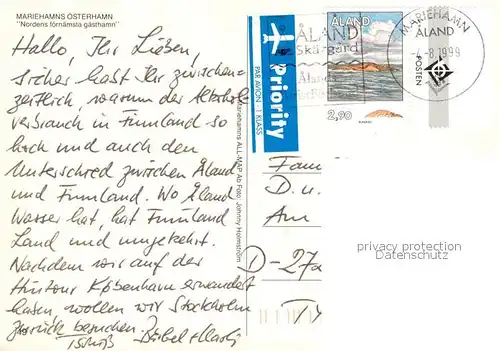 MARIEHAMNS ÖSTERHAMN
"Nordens förnämsta gästhamn"
Hallo, Ihr Lieben,
sicher habt Ihr zwischen-
zeitlich, warum der Alkohol-
verbrauch in Finnland so
hoch und auch den
Unterschied zwischen Åland
und Finnland. Wo Åland
Wasser hat, hat Finnland
Land und umgekehrt.
Nachdem wir auf der
Hintour København
haben, wollen wir Stockholm
zurück besuchen.
Tschüß Bärbel +
Mariehamns ALL-MAP Ab Foto: Johnny Holmström
Priority
PAR AVION 1 KLASS
ÅLAND
Skärgård
Åland
ÅLAND
2,90
MARIEHAMN
ÅLAND
-4-8.1999
POSTEN
Fam
D. u.
Am
D-27a
privacy protection
Datenschutz